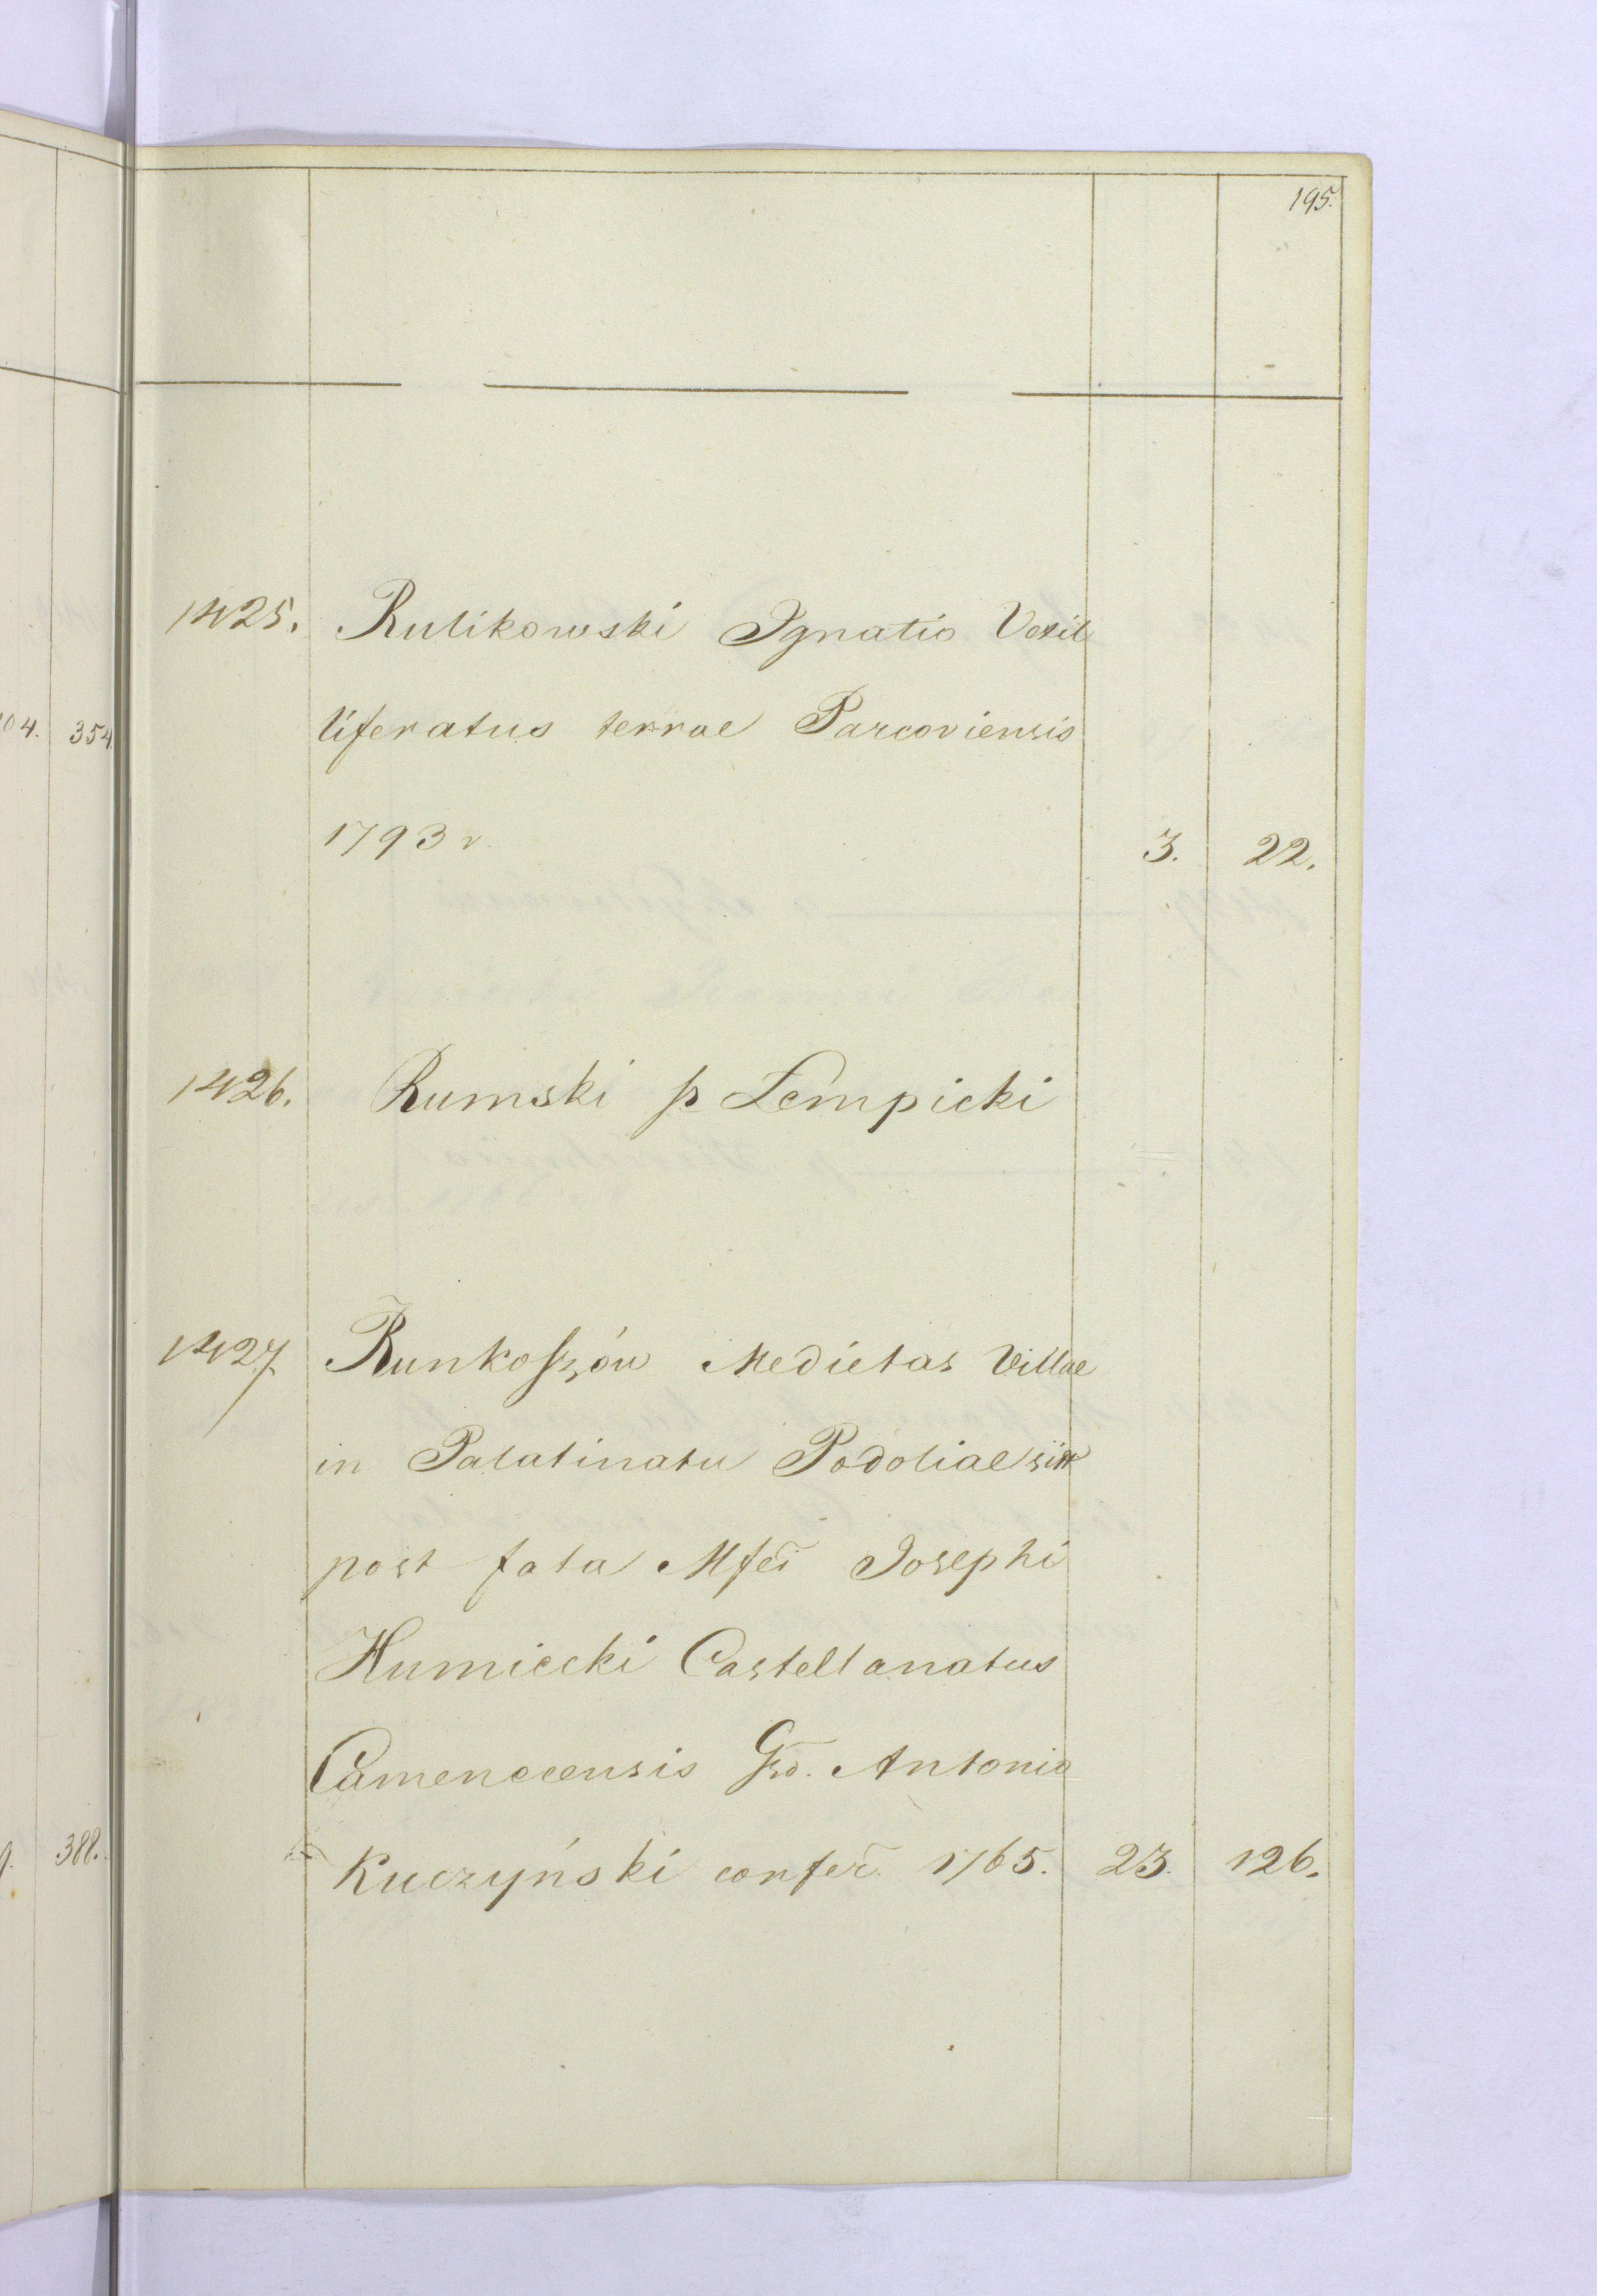 195.
1425. Rulikowski Ignatio Vexil
liferatus terrae Parcoviensis
1793 r. 3. 22.
1426. Rumski p Łempicki
1427 Runkoszów Medietas Villae
in Palatinatu Podoliae
post fata Mfci Josephi
Humiecki Castellanatus
Camenecensis Gso. Antonio
Kuczyński confer 1765. 23. 126.
04. 354
388.